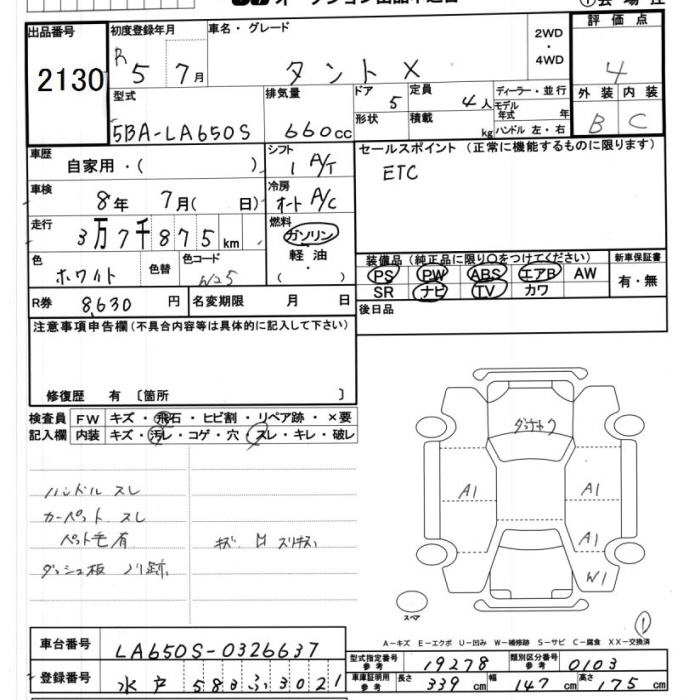 出品番号
2130
初度登録年月
R 5 7月
車名・グレード
タントX
2WD
・
4WD
評価点
4
外装 内装
B C
型式
5BA-LA650S
排気量
660cc
ドア 5
形状
定員 4人
積載 kg
ディーラー・並行
モデル年式 年
ハンドル 左・右
車歴
自家用・( )
シフト
1 A/T
セールスポイント (正常に機能するものに限ります)
ETC
車検
8年 7月( 日)
冷房
オート A/C
走行
3万7千875km
燃料
ガソリン
軽油
・
( )
色
ホワイト
色替
色コード
W25
装備品 (純正品に限り○をつけてください)
PS PW ABS エアB AW
SR ナビ TV カワ
新車保証書
有・無
R券 8,630 円
名変期限 月 日
後日品
注意事項申告欄 (不具合内容等は具体的に記入して下さい)
修復歴 有 〔箇所 〕
検査員
記入欄
FW キズ・飛石・ヒビ割・リペア跡・×要
内装 キズ・汚レ・コゲ・穴・スレ・キレ・破レ
ハンドル スレ
カーペット スレ
ペット毛有
ダッシュ板 ノリ跡
A1
A1
A1
W1
スペア
1
A-キズ E-エクボ U-凹み W-補修跡 S-サビ C-腐食 XX-交換済
車台番号 LA650S-0326637
登録番号 水戸 583ふ3021
型式指定番号
参考
19278
類別区分番号
参考
0103
車庫証明用
参考
長さ 339 cm 幅 147 cm 高さ 175 cm